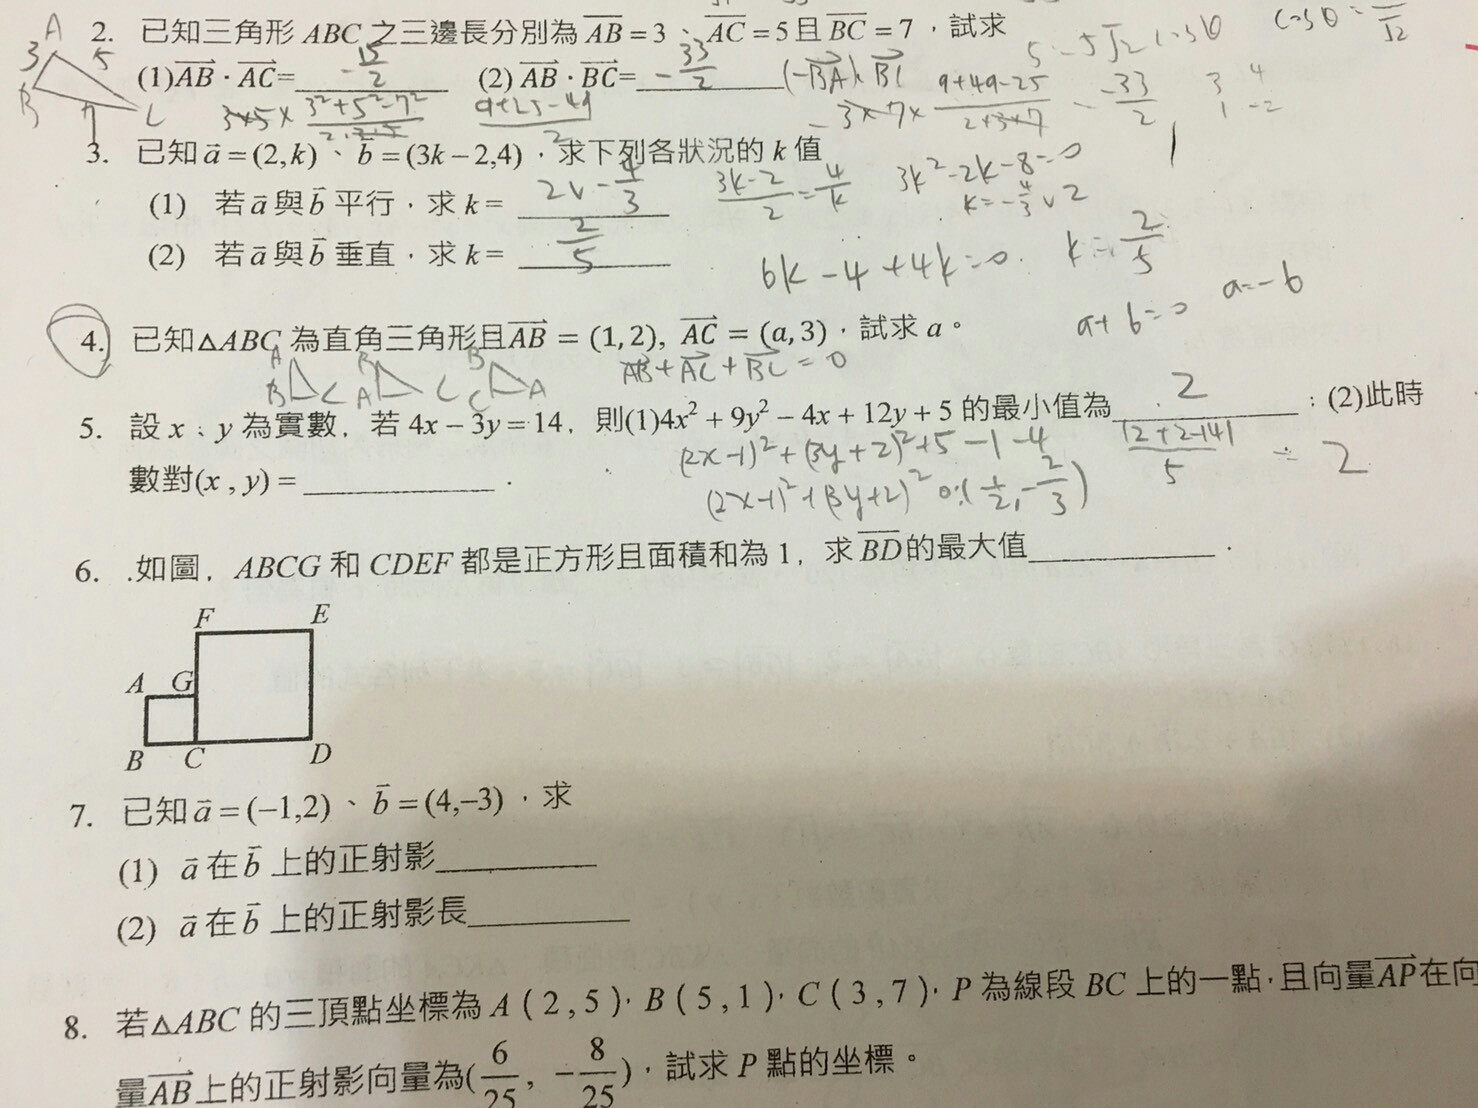 2. 已知三角形 ABC 之三邊長分別為 AB = 3、AC = 5 且 BC = 7，試求
A 3 5 B 7 C
(1) AB · AC = -15/2 (2) AB · BC = -33/2 (-BA)·BC
3×5× (3²+5²-7²)/(2·3×5) (9+25-49)/2 -3×7× (9+49-25)/(2×3×7) = -33/2
3. 已知 a = (2, k)、b = (3k − 2,4)，求下列各狀況的 k 值
(1) 若 a 與 b 平行，求 k = 2 v -4/3 (3k-2)/2 = 4/k 3k²-2k-8=0
k=-4/3 v 2
(2) 若 a 與 b 垂直，求 k = 2/5 6k-4+4k=0. k=2/5
a+b=0 a=-b
4. 已知△ABC 為直角三角形且 AB = (1, 2), AC = (a, 3)，試求 a。
A B C B A C B C A AB+AC+BC=0
5. 設 x、y 為實數，若 4x − 3y = 14，則(1)4x² + 9y² − 4x + 12y + 5 的最小值為 2 ；(2)此時
(2x-1)²+(3y+2)²+5-1-4 |2+2-14|/5 = 2
數對(x , y) = .
(2x-1)²+(3y+2)² 0:(1/2,-2/3)
6. .如圖，ABCG 和 CDEF 都是正方形且面積和為 1，求 BD 的最大值 .
F E
A G
B C D
7. 已知 a = (−1,2)、b = (4,−3)，求
(1) a 在 b 上的正射影
(2) a 在 b 上的正射影長
8. 若△ABC 的三頂點坐標為 A ( 2 , 5 )，B ( 5 , 1 )，C ( 3 , 7 )，P 為線段 BC 上的一點，且向量 AP 在向
量 AB 上的正射影向量為(6/25, −8/25)，試求 P 點的坐標。